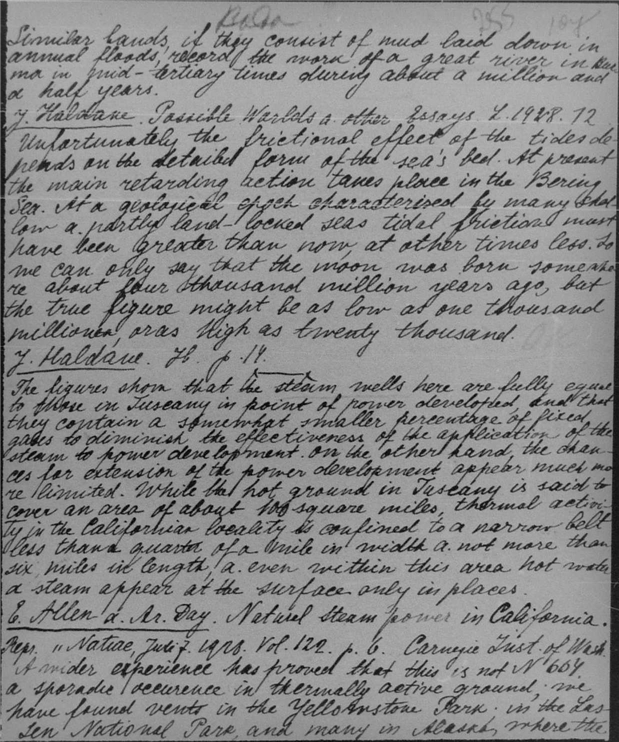 Similar bands, if they consist of mud laid down in
annual floods, record the work of a great river in Bur
ma in mid-tertiary times during about a million and
a half years.
J. Haldane. Possible Worlds a. other Essays. L. 1928. 12
Unfortunately the frictional effect of the tides de-
pends on the detailed form of the sea's bed. At present
the main retarding action takes place in the Bering
Sea. At a geological epoch characterized by many shal
low a. partly land-locked seas tidal friction must
have been greater than now, at other times less. So
we can only say that the moon was born somewhe
re about four thousand million years ago, but
the true figure might be as low as one thousand
millions, or as high as twenty thousand.
J. Haldane. Ib. p. 14.
The figures show that the steam wells here are fully equal
to those in Tuscany in point of power developed and that
they contain a somewhat smaller percentage of fixed
gases to diminish the effectiveness of the application of the
steam to power development. On the other hand, the chan-
ces for extension of the power development appear much mo
re limited. While the hot ground in Tuscany is said to
cover an area of about 100 square miles, thermal activi-
ty in the Californian locality is confined to a narrow belt
less than a quarter of a mile in width a. not more than
six miles in length, a. even within this area hot water
a. steam appear at the surface only in places.
E. Allen a. Ar. Day. Natural steam power in California.
Repr. "Nature, July 7. 1928. Vol. 122. p. 6. Carnegie Inst. of Wash.
A wider experience has proved that this is not N 664
a sporadic occurence in thermally active ground; we
have found vents in the Yellowstone Park. in the Las-
sen National Park, and many in Alaska, where the